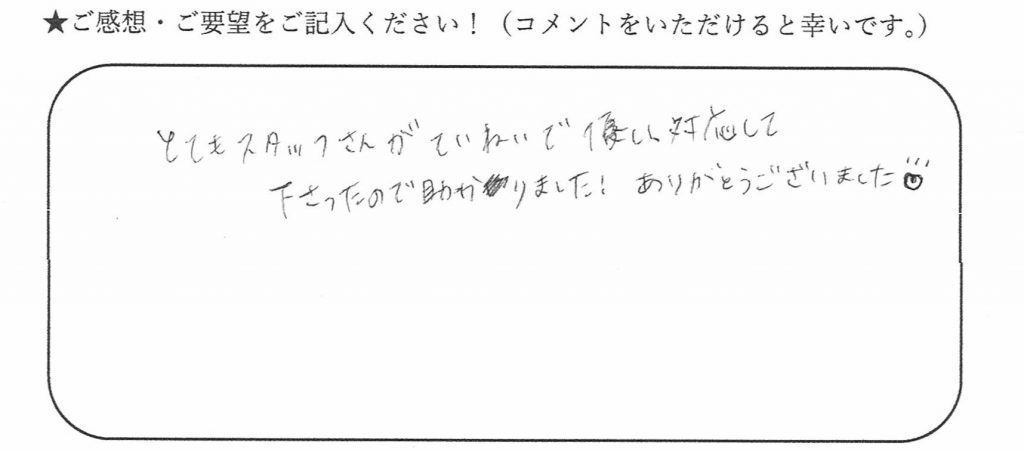 ★ご感想・ご要望をご記入ください！（コメントをいただけると幸いです。）
とてもスタッフさんがていねいで優しく対応して
下さったので助かりました！ ありがとうございました